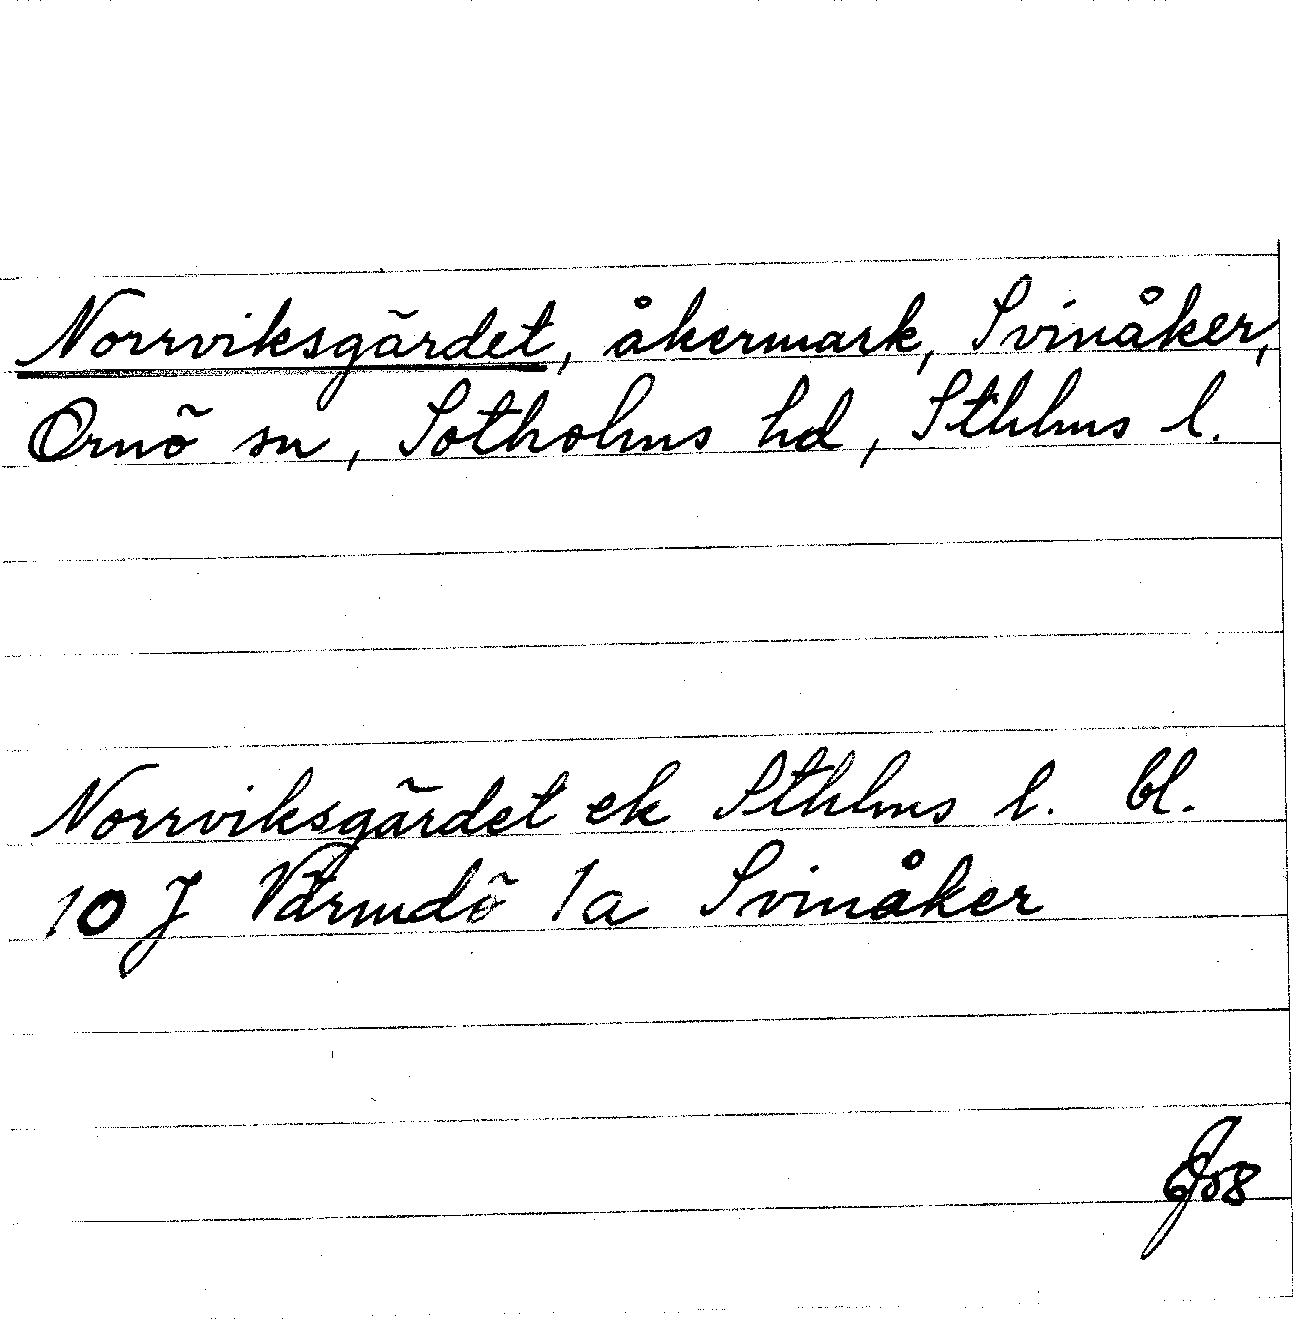 Norrviksgärdet, åkermark, Svinåker,
Ornö sn, Sotholms hd, Sthlms l.
Norrviksgärdet ek Sthlms l. bl.
10 J Värmdö 1a Svinåker